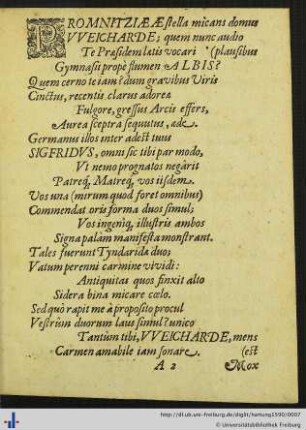 PROMNITZIAEAE stella micans domus
VVEICHARDE; quem nunc audio
Te Præsidem latis vocari (plausibus
Gymnasii propè flumen ALBIS?
Quem cerno te iam? dum gravibus Viris
Cinctus, recentis clarus adoreæ
Fulgore, gressus Arcis effers,
Aurea sceptra sequutus, æde.
Germanus illos inter adest tuus
SIGFRIDVS, omni sic tibi par modo,
Vt nemo prognatos negârit
Patreq́, Matreq́, vos iisdem.
Vos una (mirum quod foret omnibus)
Commendat oris forma duos simul;
Vos ingeniq́, illustris ambos
Signa palàm manifesta monstrant.
Tales fuerunt Tyndaridæ duo;
Vatum perenni carmine vividi:
Antiquitas quos finxit alto
Sidera bina micare cœlo.
Sed quò rapit me à proposito procul
Vestrûm duorum laus simul? unico
Tantùm tibi, VVEICHARDE, mens
Carmen amabile iam sonare. (est
A 2 Mox
http://dl.ub.uni-freiburg.de/diglit/hartung1590/0007
Universitätsbibliothek Freiburg